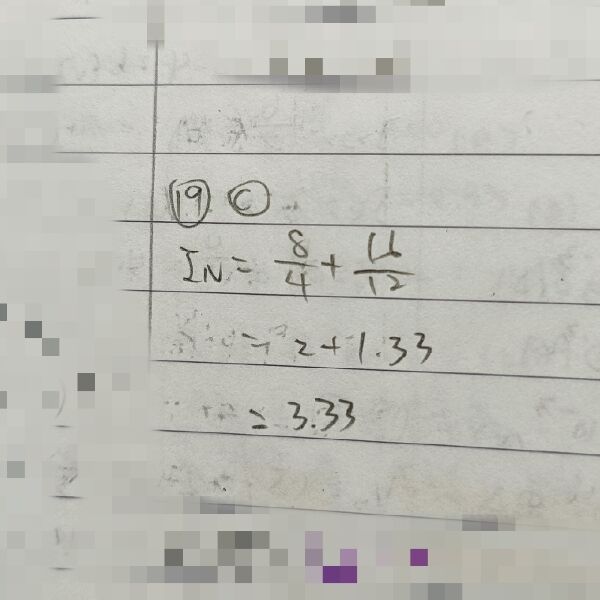 19 C
IN = 8/4 + 16/12
= 2 + 1.33
= 3.33